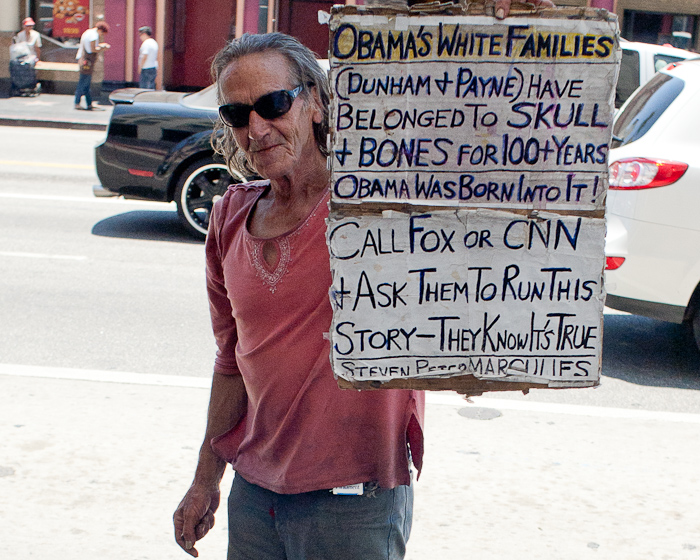 OBAMA'S WHITE FAMILIES
(DUNHAM + PAYNE) HAVE
BELONGED TO SKULL
+ BONES FOR 100+ YEARS
OBAMA WAS BORN INTO IT!
CALL FOX OR CNN
+ ASK THEM TO RUN THIS
STORY—THEY KNOW IT'S TRUE
STEVEN PETER MARGULIES